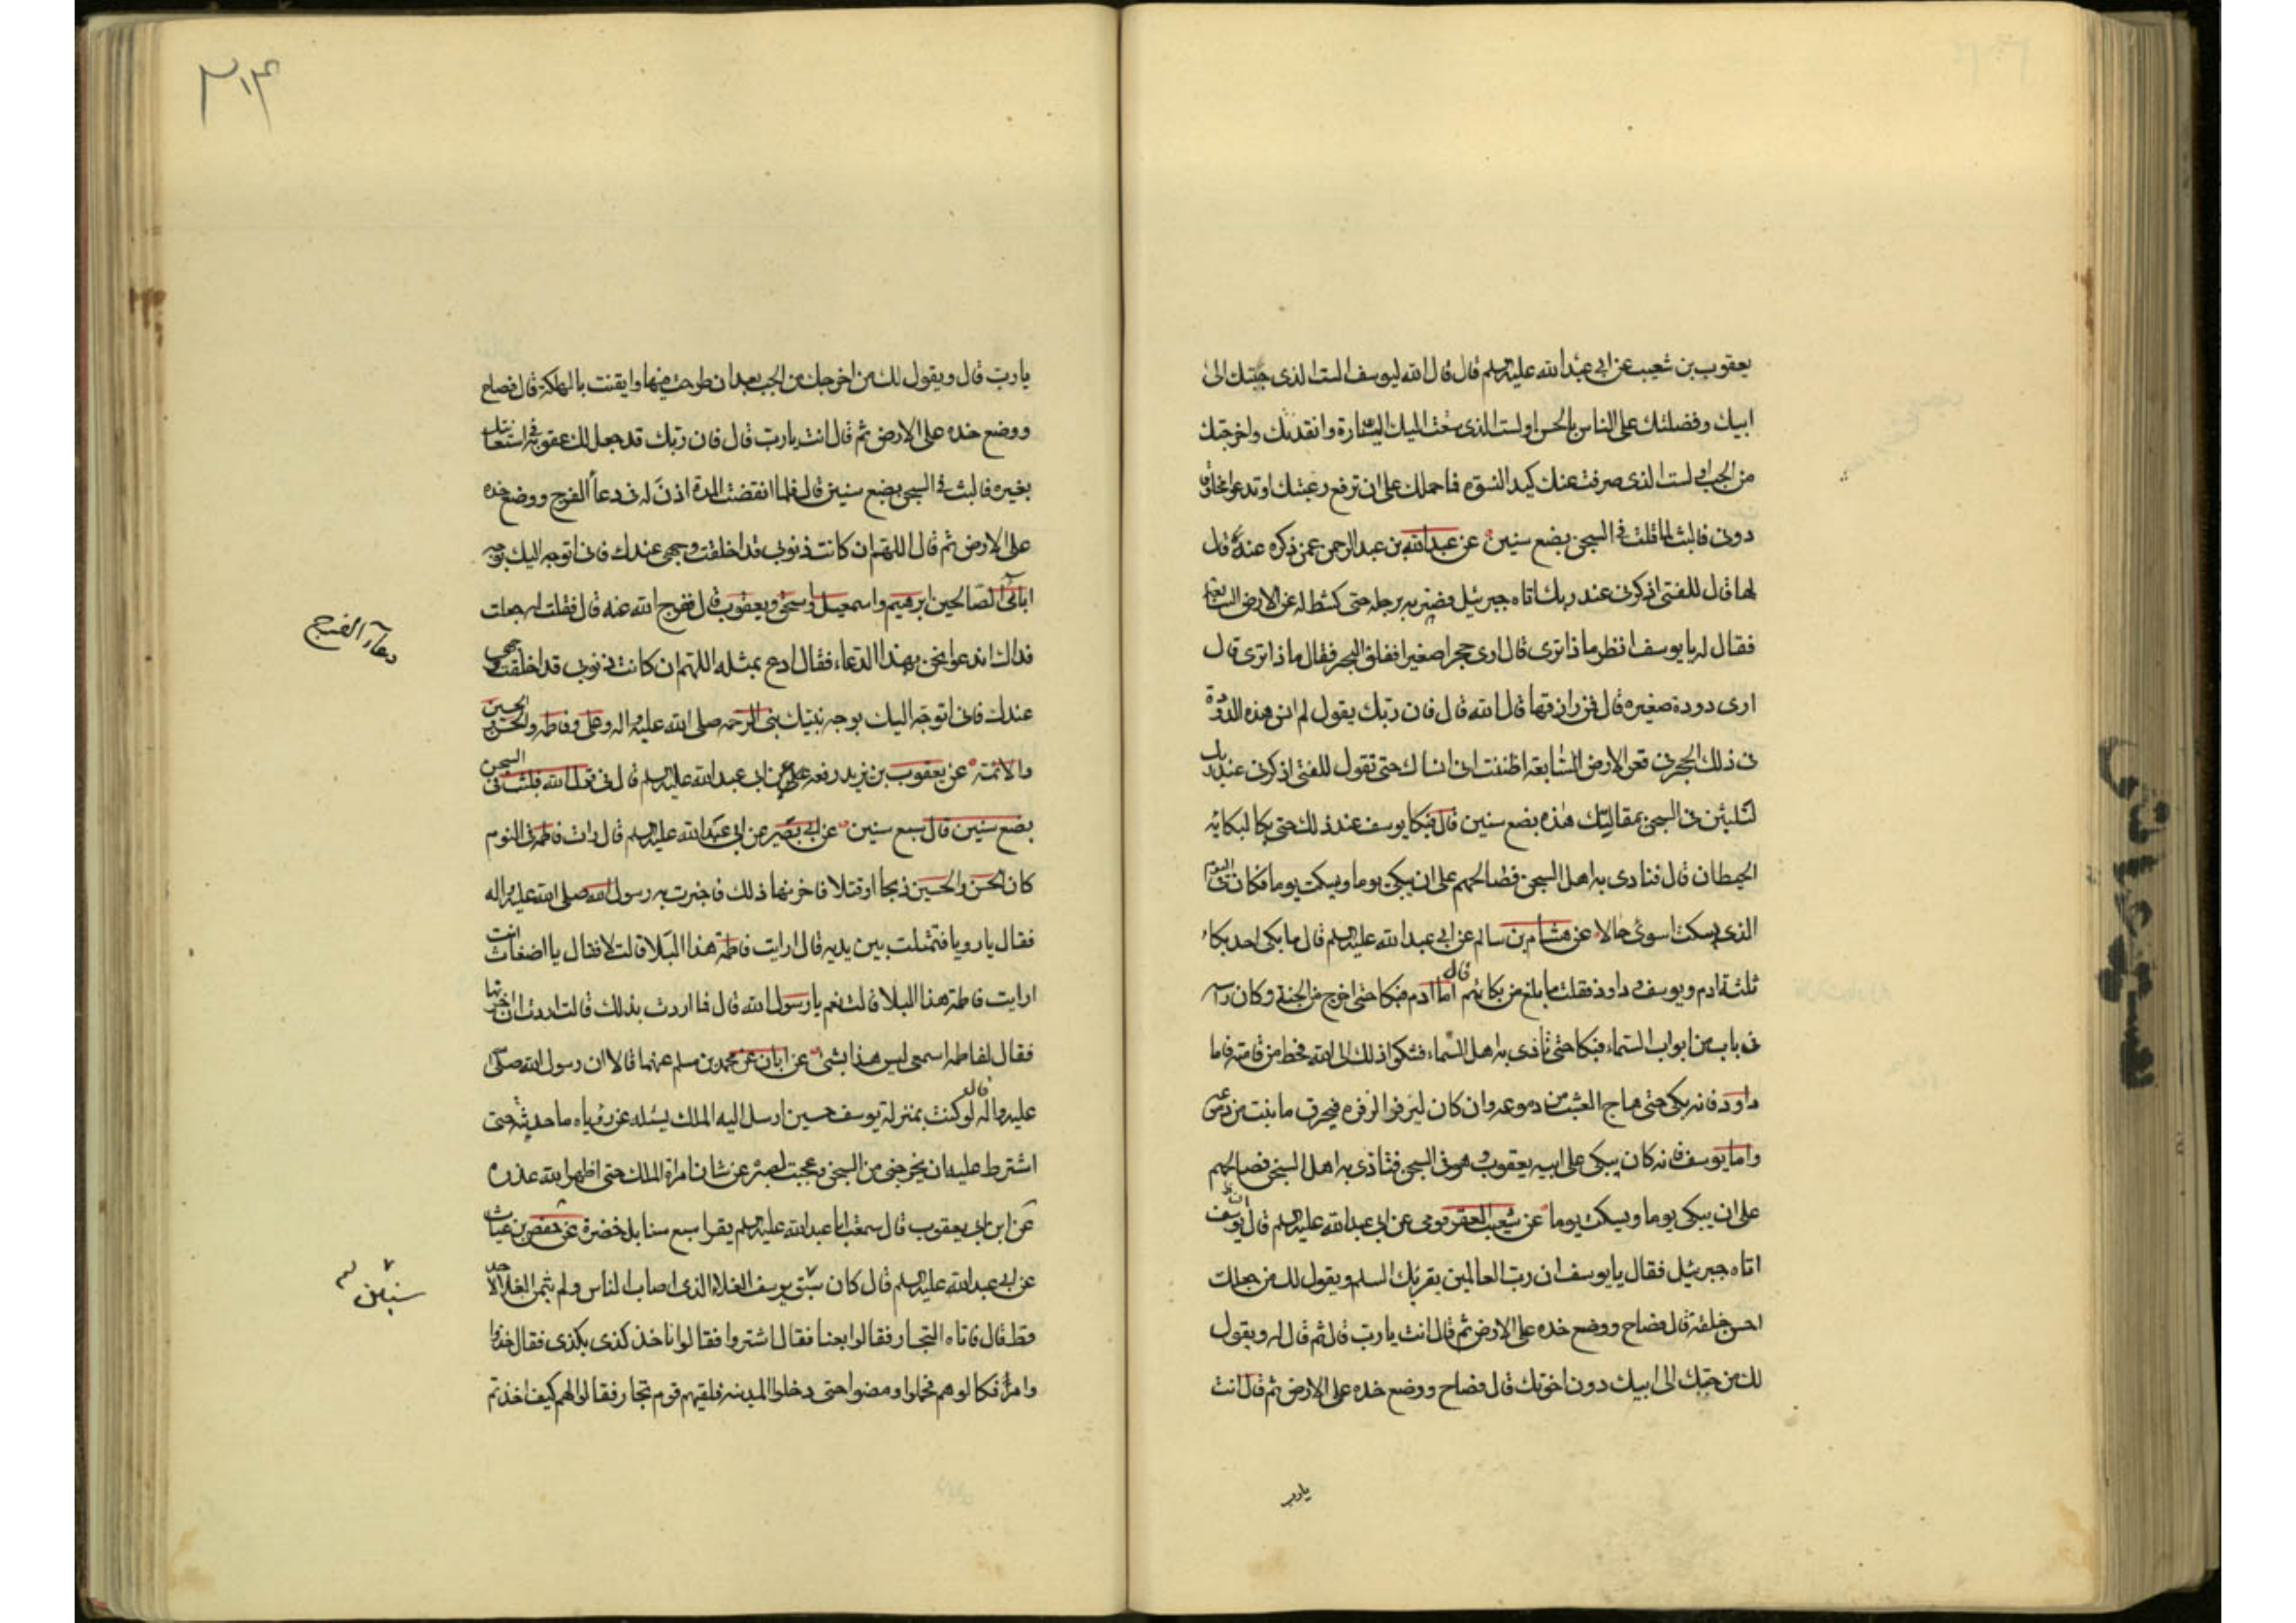 يعقوب بن شعيب عن ابي عبدالله عليه السلم قال قال الله ليوسف الست الذى حببتك الى
ابيك وفضلتك على الناس بالحسن اولست الذى سقت اليك السيارة وانقذتك واخرجتك
من الجب اولست الذى صرفت عنك كيد النسوة فما حملك على ان ترفع رغبتك او تدعو مخلوقا
دونى فالبث لما قلت فى السجن بضع سنين عن عبدالله بن عبدالرحمن عمن ذكره عنه قال
لما قال للفتى اذكرنى عند ربك اتاه جبرئيل فضربه برجله حتى كشط له عن الارض السابعة
فقال له يا يوسف انظر ماذا ترى قال ارى حجرا صغيرا ففلق الحجر فقال ماذا ترى قال
ارى دودة صغيره قال فمن رازقها قال الله قال فان ربك يقول لم انس هذه الدودة
فى ذلك الحجر فى قعر الارض السابعة اظننت انى انساك حتى تقول للفتى اذكرنى عند ربك
لتلبثن فى السجن بمقالتك هذه بضع سنين قال فبكا يوسف عند ذلك حتى بكا لبكائه
الحيطان قال فتاذى به اهل السجن فصالحهم على ان يبكى يوما ويسكت يوما فكان فى اليوم
الذى يسكت اسوى حالا عن هشام بن سالم عن ابى عبدالله عليه السلم قال ما بكى احد بكاء
ثلثة ادم ويوسف و داود فقلت ما بلغ من بكائهم قال اما آدم فبكا حتى اخرج من الجنة وكان راسه
فى باب من ابواب السماء فبكا حتى تاذى به اهل السماء فشكوا ذلك الى الله فحط من قامته فاما
داود فانه بكى حتى هاج العشب من دموعه وان كان ليزفر الزفره فيحرق ما نبت من دموعه
واما يوسف فانه كان يبكى على ابيه يعقوب و هو فى السجن فتاذى به اهل السجن فصالحهم
على ان يبكى يوما ويسكت يوما عن شعيب العقرقوفى عن ابى عبدالله عليه السلم قال ان يوسف
اتاه جبرئيل فقال يا يوسف ان رب العالمين يقرئك السلم ويقول لك من جعلك
احسن خلقه قال فصاح ووضع خده على الارض ثم قال انت يا رب قال ثم قال له ويقول
لك من حببك الى ابيك دون اخوتك قال فصاح ووضع خده على الارض ثم قال انت
يا رب
٣١۴
يا رب قال ويقول لك من اخرجك من الجب بعد ان طرحت فيها وايقنت بالهلكة قال فصاح
ووضع خده على الارض ثم قال انت يا رب قال فان ربك قد جعل لك عقوبة فى استغاثتك
بغيره فالبث فى السجن بضع سنين قال فلما انقضت المدة اذن له فى دعاء الفرج ووضع خده
على الارض ثم قال اللهم ان كانت ذنوبى قد اخلقت وجهى عندك فانى اتوجه اليك بوجه
ابائى الصالحين ابرهيم واسمعيل واسحق ويعقوب قال ففرج الله عنه قال فقلت له جعلت
فداك اندعوا نحن بهذا الدعاء فقال ادع بمثله اللهم ان كانت ذنوبى قد اخلقت وجهى
عندك فانى اتوجه اليك بوجه نبيك نبى الرحمه صلى الله عليه واله وعلى وفاطمه والحسن والحسين
والائمة عن يعقوب بن يزيد رفعه عن ابى عبدالله عليه السلم قال فى قول الله فلبث فى السجن
بضع سنين قال سبع سنين عن ابى بصير عن ابى عبدالله عليه السلم قال رات فاطمة فى النوم
كان الحسن والحسين ذبحا او قتلا فاحزنها ذلك فاخبرت به رسول الله صلى الله عليه واله
فقال يا رويا فتمثلت بين يديه قال ارايت فاطمة هذا البلا قالت لا فقال يا اضغاث انت
ارايت فاطمة هذا البلا قالت نعم يا رسول الله قال فما اردت بذلك قالت اردت ان احزنها
فقال لفاطمه اسمعى ليس هذا بشئ عن ابان عن محمد بن مسلم عنهما قالا ان رسول الله صلى
عليه واله قال لو كنت بمنزلة يوسف حين ارسل اليه الملك يسئله عن رؤياه ما حدثته حتى
اشترط عليه ان يخرجنى من السجن وعجبت لصبره عن شان امراة الملك حتى اظهر الله عذره
عن ابن ابى يعقوب قال سمعت ابا عبدالله عليه السلم يقرا سبع سنابل خضرة عن حفص بن غياث
عن ابى عبدالله عليه السلم قال كان سبق يوسف الغلاء الذى اصاب الناس ولم يتمن الغلا لاحد
قط قال فاتاه التجار فقالوا بعنا فقال اشتروا فقالوا ناخذ كذى بكذى فقال خذوا
وامر فكالوهم فحملوا ومضوا حتى دخلوا المدينه فلقيهم قوم تجار فقالوا لهم كيف اخذتم
دعاء الفرج